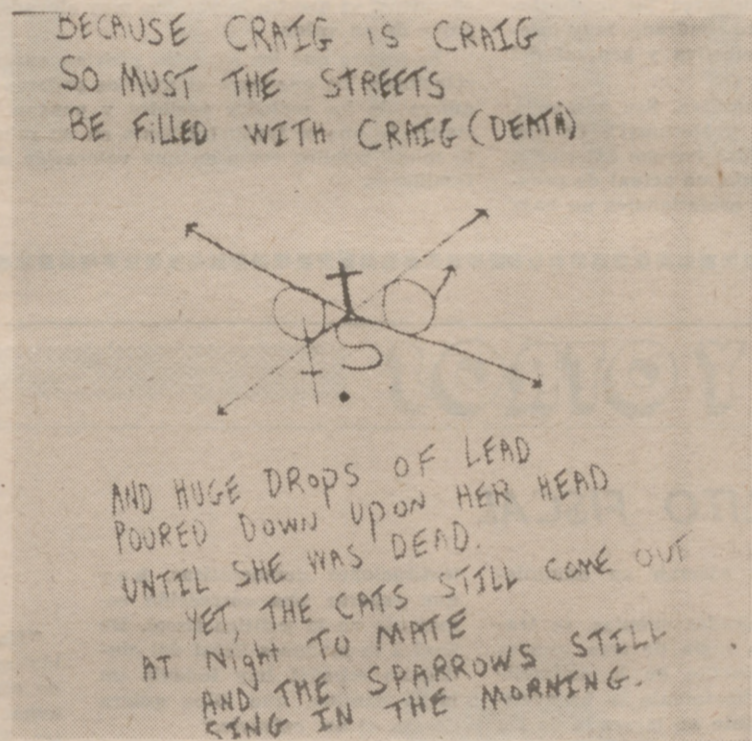 BECAUSE CRAIG IS CRAIG
SO MUST THE STREETS
BE FILLED WITH CRAIG (DEATH)
AND HUGE DROPS OF LEAD
POURED DOWN UPON HER HEAD
UNTIL SHE WAS DEAD.
YET, THE CATS STILL COME OUT
AT Night TO MATE
AND THE SPARROWS STILL
SING IN THE MORNING.